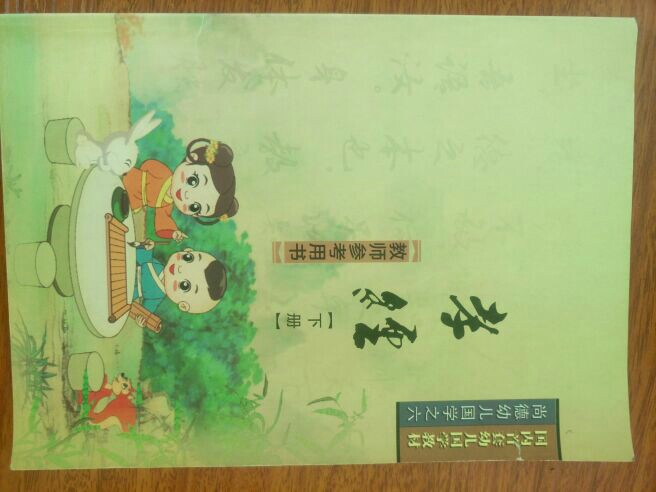 国内首套幼儿国学教材
尚德幼儿国学之六
孝经
【下册】
【教师参考用书】